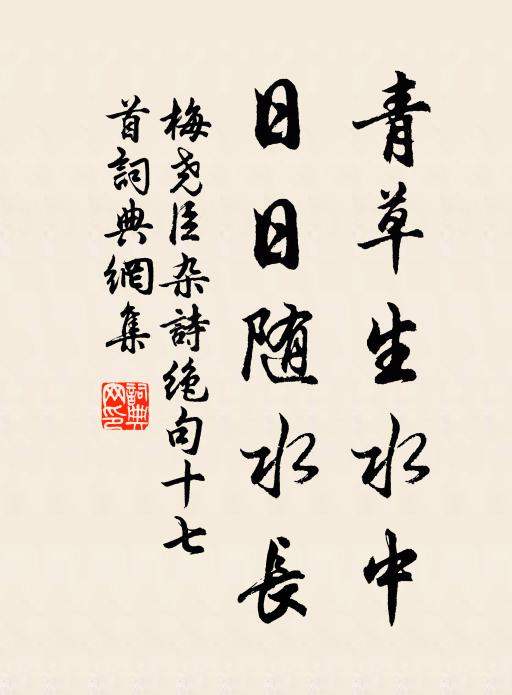 青草生水中
日日随水長
梅尧臣杂詩绝句十七
首詞典網集
詞典
网印